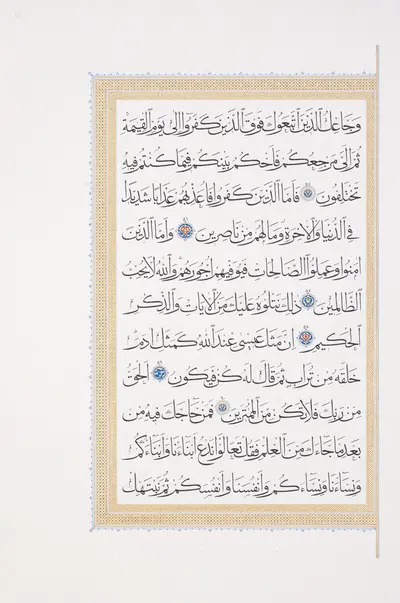 وجاعل الذين اتبعوك فوق الذين كفروا الى يوم القيمة
ثم الي مرجعكم فاحكم بينكم فيما كنتم فيه
تختلفون فاما الذين كفروا فاعذبهم عذابا شديدا
في الدنيا والاخرة ومالهم من ناصرين واما الذين
امنوا وعملوا الصالحات فيوفيهم اجورهم والله لا يحب
الظالمين ذلك نتلوه عليك من الايات والذكر
الحكيم ان مثل عيسى عند الله كمثل ادم
خلقه من تراب ثم قال له كن فيكون الحق
من ربك فلا تكن من الممترين فمن حاجك فيه من
بعد ما جاءك من العلم فقل تعالوا ندع ابناءنا وابناءكم
ونساءنا ونساءكم وانفسنا وانفسكم ثم نبتهل